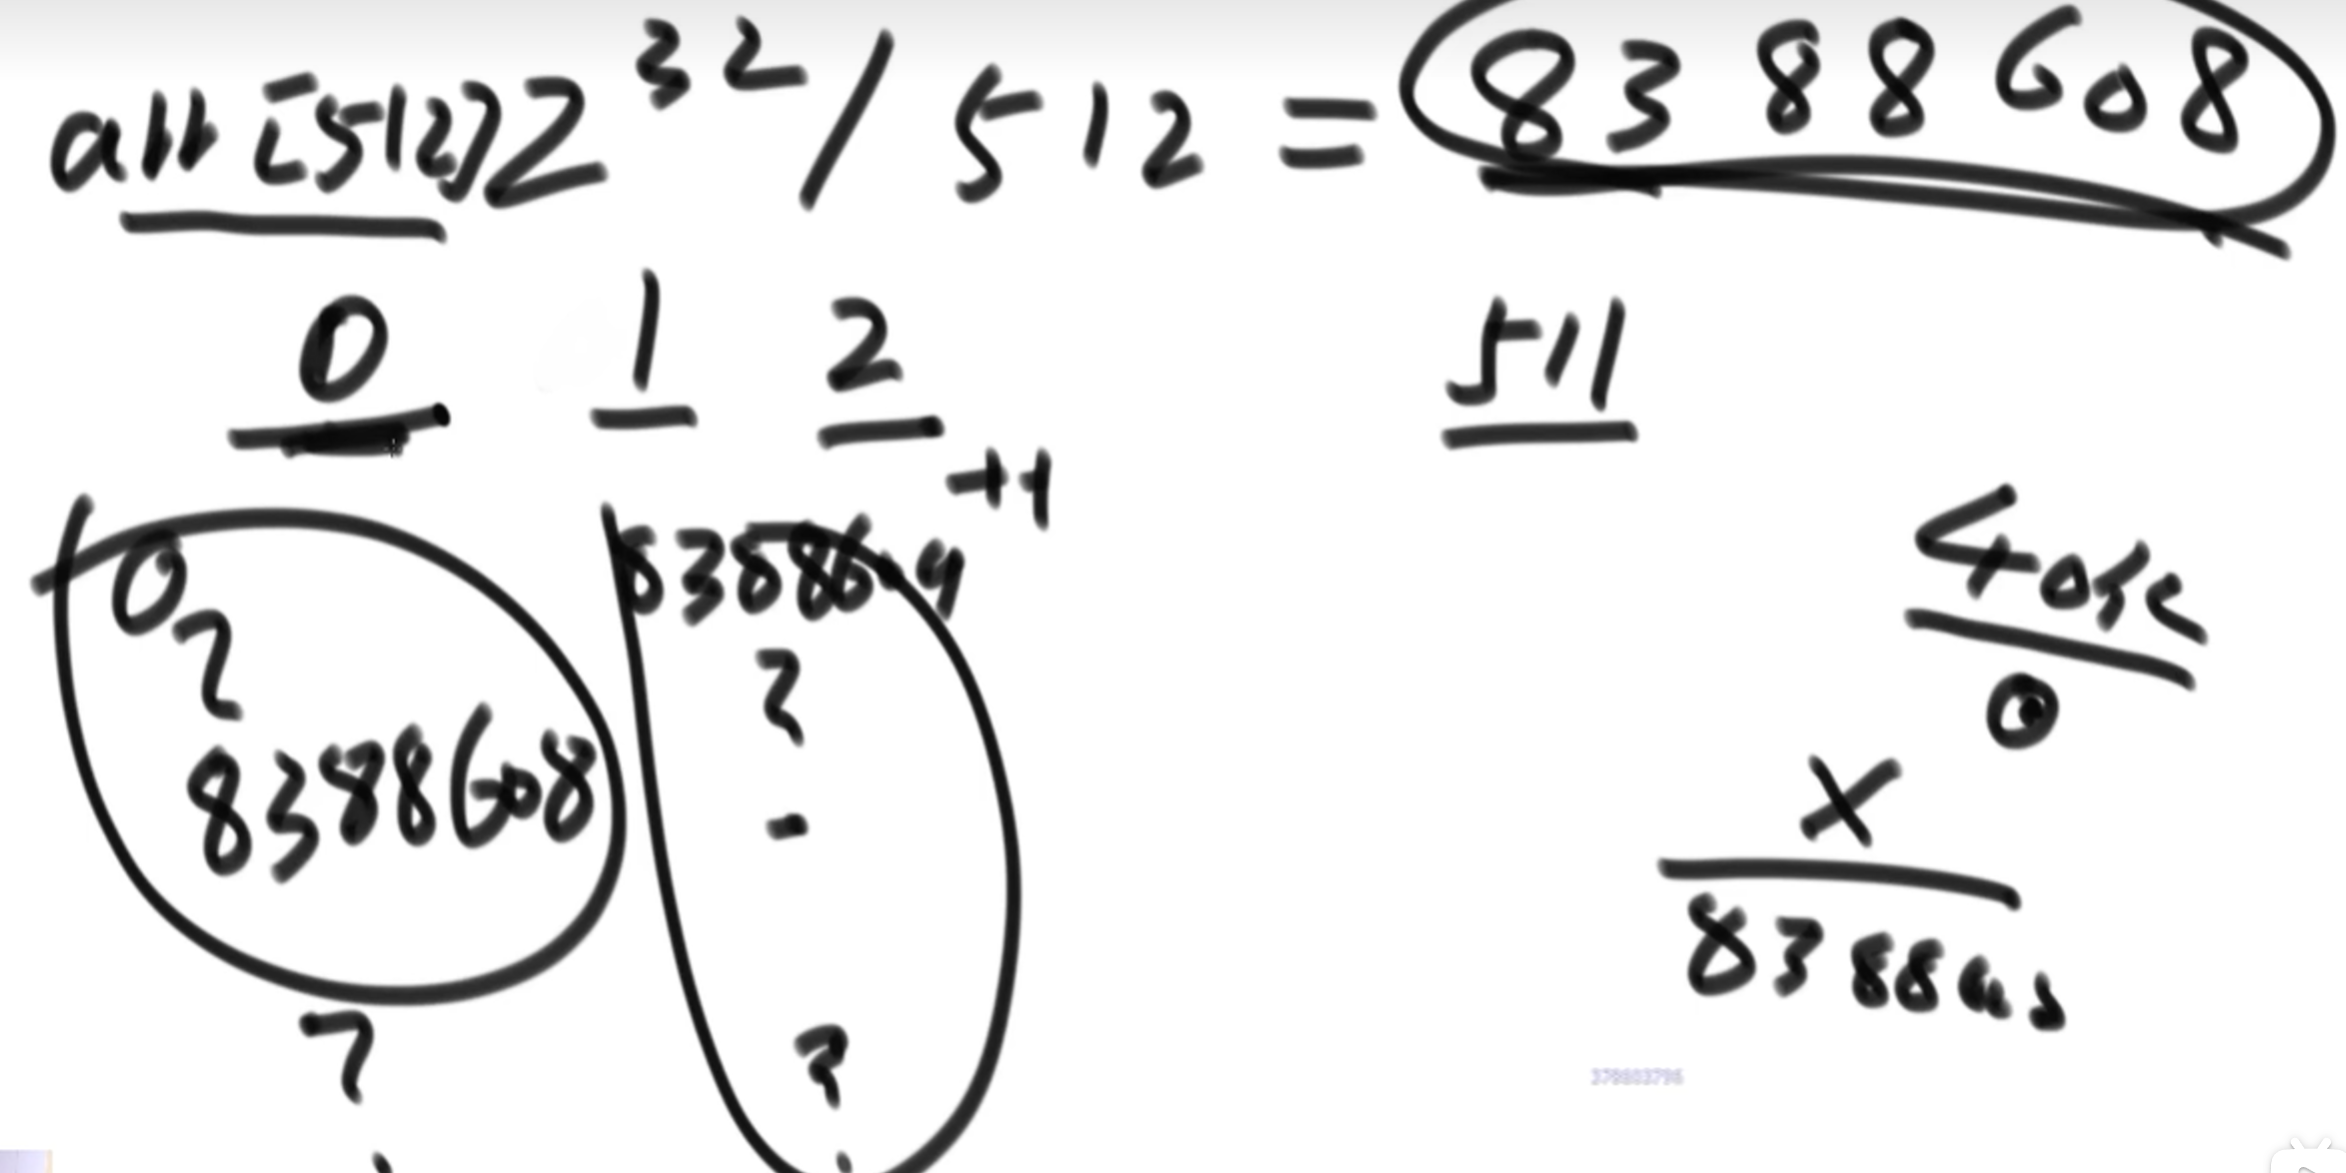 arr[512] 2^32 / 512 = 8388608
0 1 2 511
++
0 8388609
~ ?
8388608
?
?
X
83886
378603796